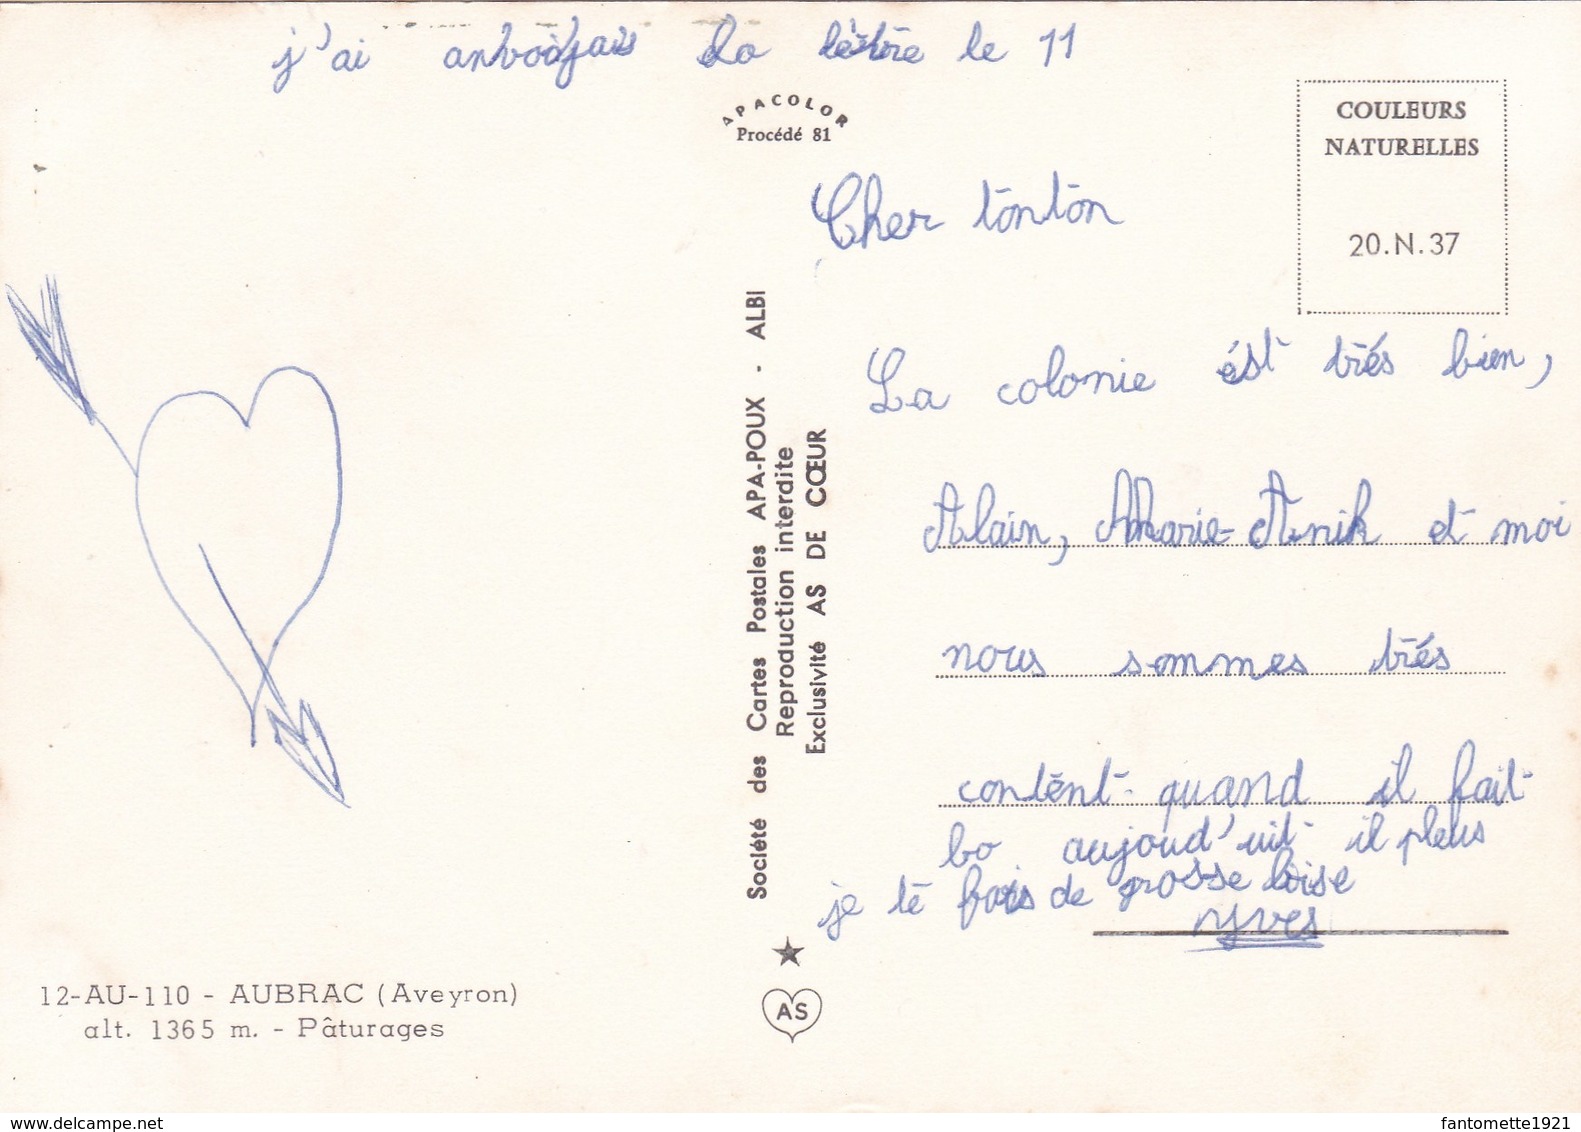 j'ai anvoàjais la lètre le 11
APACOLOR
Procédé 81
COULEURS
NATURELLES
20.N.37
Cher tonton
La colonie ést trés bien,
Alain, Marie-Anik et moi
nous sommes trés
contént quand il fait
bo aujourd'uit il pleus
je te fais de grosse boise
yves
Société des Cartes Postales APA-POUX - ALBI
Reproduction interdite
Exclusivité AS DE CŒUR
AS
12-AU-110 - AUBRAC (Aveyron)
alt. 1365 m. - Pâturages
www.delcampe.net
fantomette1921